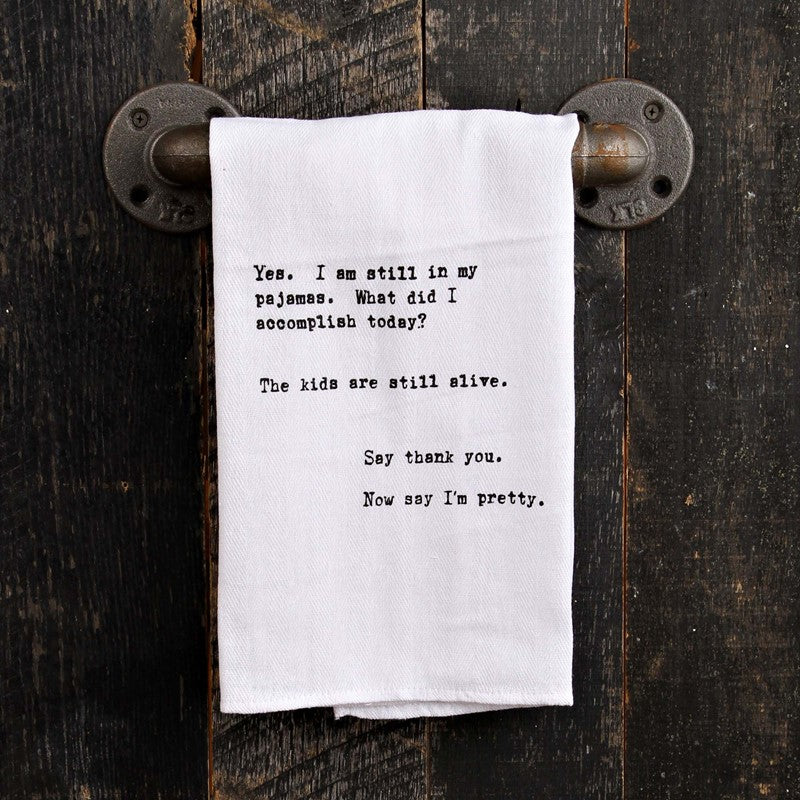 Yes. I am still in my
pajamas. What did I
accomplish today?
The kids are still alive.
Say thank you.
Now say I'm pretty.